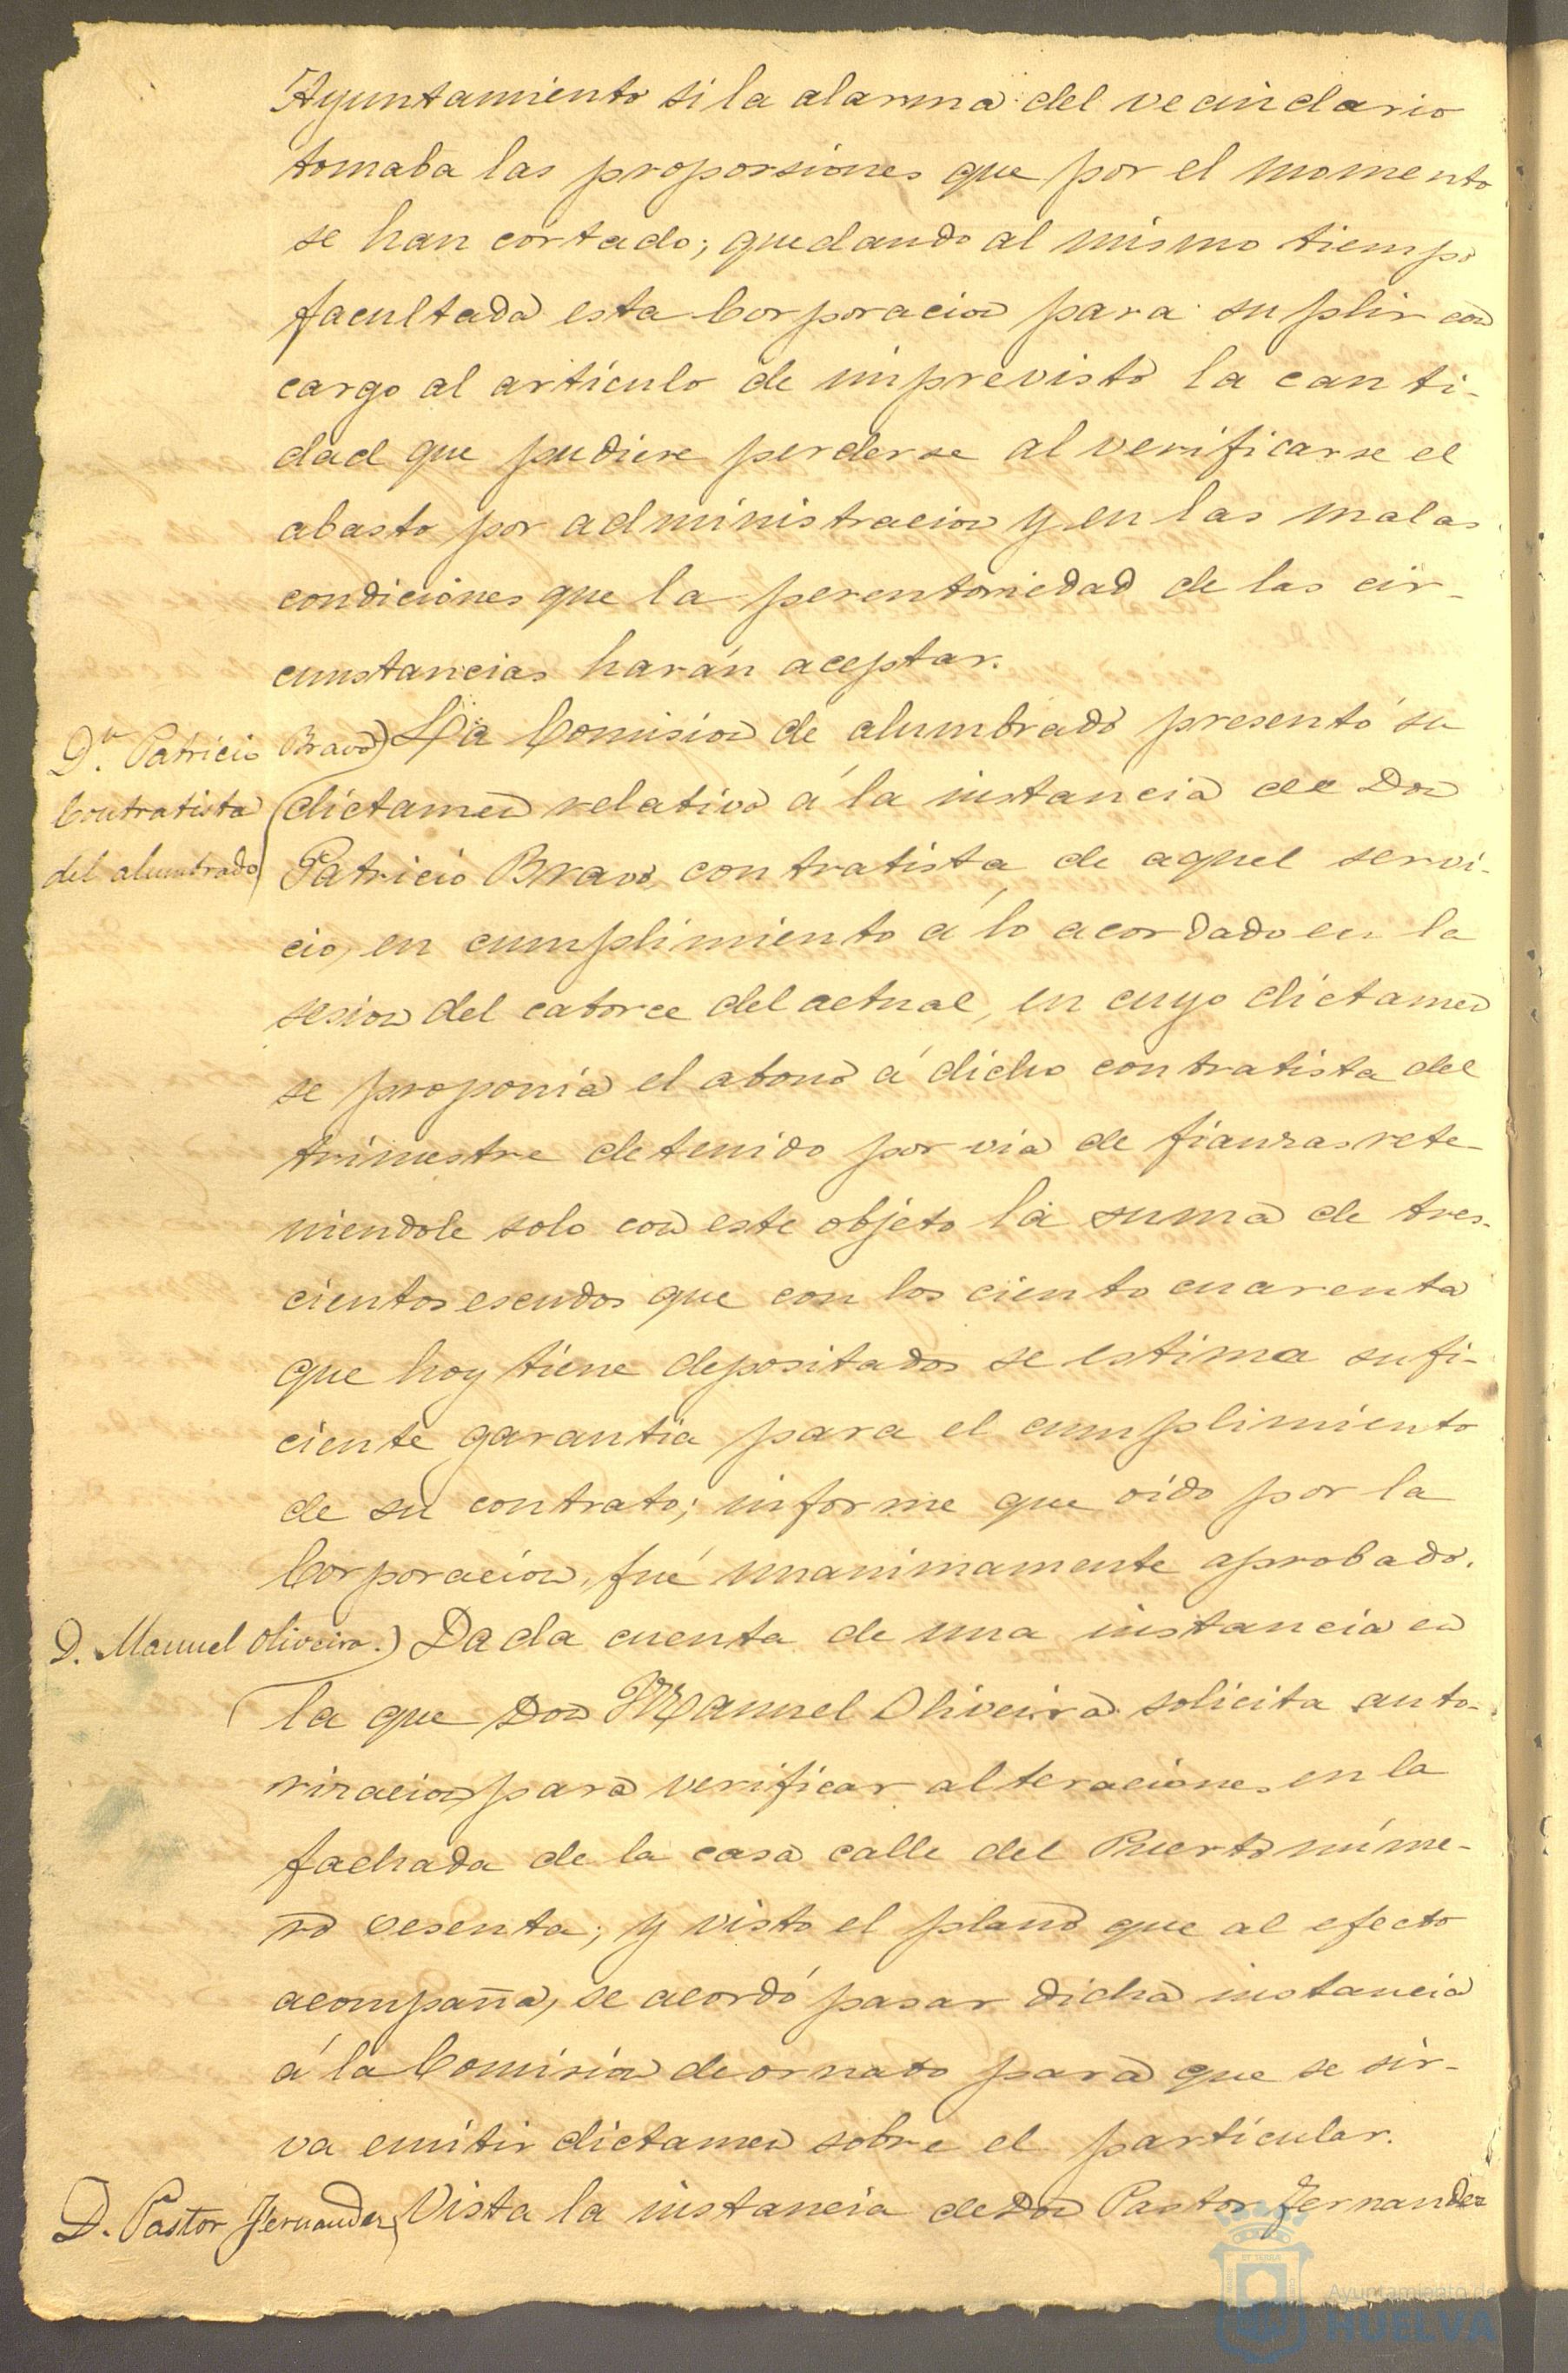 Ayuntamiento si la alarma del vecindario
tomaba las proporsiones que por el momento
se han cortado; quedando al mismo tiempo
facultada esta Corporacion para suplir con
cargo al artículo de imprevisto la canti-
dad que pudiere perderse al verificarse el
abasto por administracion y en las malas
condiciones que la perentoriedad de las cir-
cunstancias harán aceptar.
Dn. Patricio Bravo)
Contratista
del alumbrado
La Comision de alumbrado presentó su
dictamen relativo á la instancia de Don
Patricio Bravo, contratista de aquel servi-
cio, en cumplimiento á lo acordado en la
sesion del catorce del actual, en cuyo dictamen
se proponia el abono á dicho contratista del
trimestre detenido por via de fianzas rete-
niendole solo con este objeto la suma de tres-
cientos escudos que con los ciento cuarenta
que hoy tiene depositados se estima sufi-
ciente garantia para el cumplimiento
de su contrato; informe que oido por la
Corporacion, fué unanimamente aprobado.
D. Manuel Oliveira.)
Dada cuenta de una instancia en
la que Don Manuel Oliveira solicita auto-
rizacion para verificar alteraciones en la
fachada de la casa calle del Puerto núme-
ro sesenta; y visto el plano que al efecto
acompaña, se acordó pasar dicha instancia
á la Comision de ornato para que se sir-
va emitir dictamen sobre el particular.
D. Pastor Fernandez)
Vista la instancia de Don Pastor Fernandez
Ayuntamiento de
HUELVA